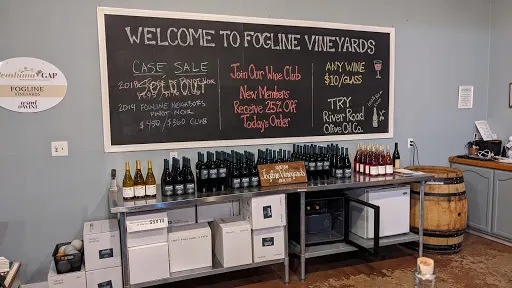 WELCOME TO FOGLINE VINEYARDS
CASE SALE
SOLD OUT
2019 FOGLINE NEIGHBORS
PINOT NOIR
$430/$360 CLUB
Join Our Wine Club
New Members
Receive 25% Off
Today's Order
ANY WINE
$10/GLASS
TRY
River Road
Olive Oil Co.
Petaluma GAP
FOGLINE
VINEYARDS
wind to WINE
Fogline Vineyards